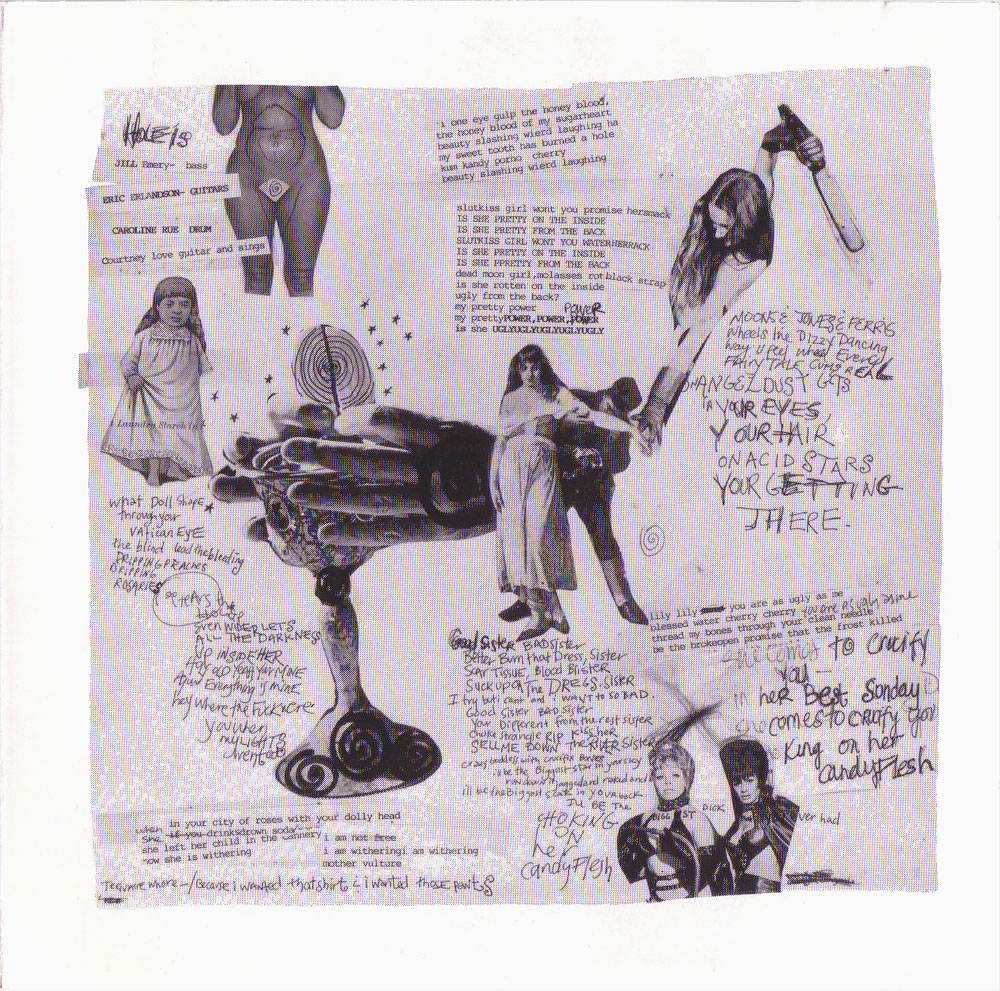 HOLE IS
JILL Emery- bass
ERIC ERLANDSON- GUITARS
CAROLINE RUE DRUM
Courtney love guitar and sings
i one eye gulp the honey blood,
the honey blood of my sugarheart
beauty slashing wierd laughing ha
my sweet tooth has burned a hole
kum kandy porno cherry
beauty slashing wierd laughing
slutkiss girl wont you promise hersmack
IS SHE PRETTY ON THE INSIDE
IS SHE PRETTY FROM THE BACK
SLUTKISS GIRL WONT YOU WATERHERRACK
IS SHE PRETTY ON THE INSIDE
IS SHE PPRETTY FROM THE BACK
dead moon girl,molasses rot black strap
is she rotten on the inside
ugly from the back?
my pretty power POWER
my prettyPOWER,POWER,POWER
is she UGLYUGLYUGLYUGLYUGLY
MOONS & JONES & FERRIS
Wheels the Dizzy Dancing
way U feel when Every
FAIRY TALK CUMS REAL
ANGELDUST GETS
IN YOUR EYES,
YOUR HAIR
ON ACID STARS
YOUR GETTING
THERE.
Laundry Starch
what Doll shape
through your
VATican EYE
the blind lead the bleeding
DRIPPING PEACHES
DRIPPING
ROSARIES
TEARS the
even WIDER LETS
ALL THE DARKNESS
UP INSIDE HER
Hey OLD YEAH YOUR MINE
Everything is MINE
hey where the Fuck
You when
my LIGHTS
Went out
Good Sister BAD Sister
Better Burn that Dress, Sister
Scar Tissue, Blood Blister
Suck upon The DREGS, SISTER
I try but i cant and i WANT TO SO BAD.
Good Sister BAD Sister
Your Different from the rest sister
choke strangle RIP kiss her
SELL ME DOWN The RIVER Sister
crazy Goddess with crucifix Bones
i'll be the Biggest scar in your back
I'LL BE The
CHOKING
ON
her
candyFlesh
lily lily you are as ugly as me
blessed water cherry cherry you are as ugh as me
thread my bones through your clean needle
be the brokeopen promise that the frost killed
she comes to crucify
you
in her Best Sonday
comes to crucify you
King on her
candyFlesh
DICK
ever had
when in your city of roses with your dolly head
she if you drinksdrown soda
she left her child in the cannery
now she is withering
i am not free
i am witheringi am withering
mother vulture
Teenage whore-/Because i wanted that shirt & i wanted those pants